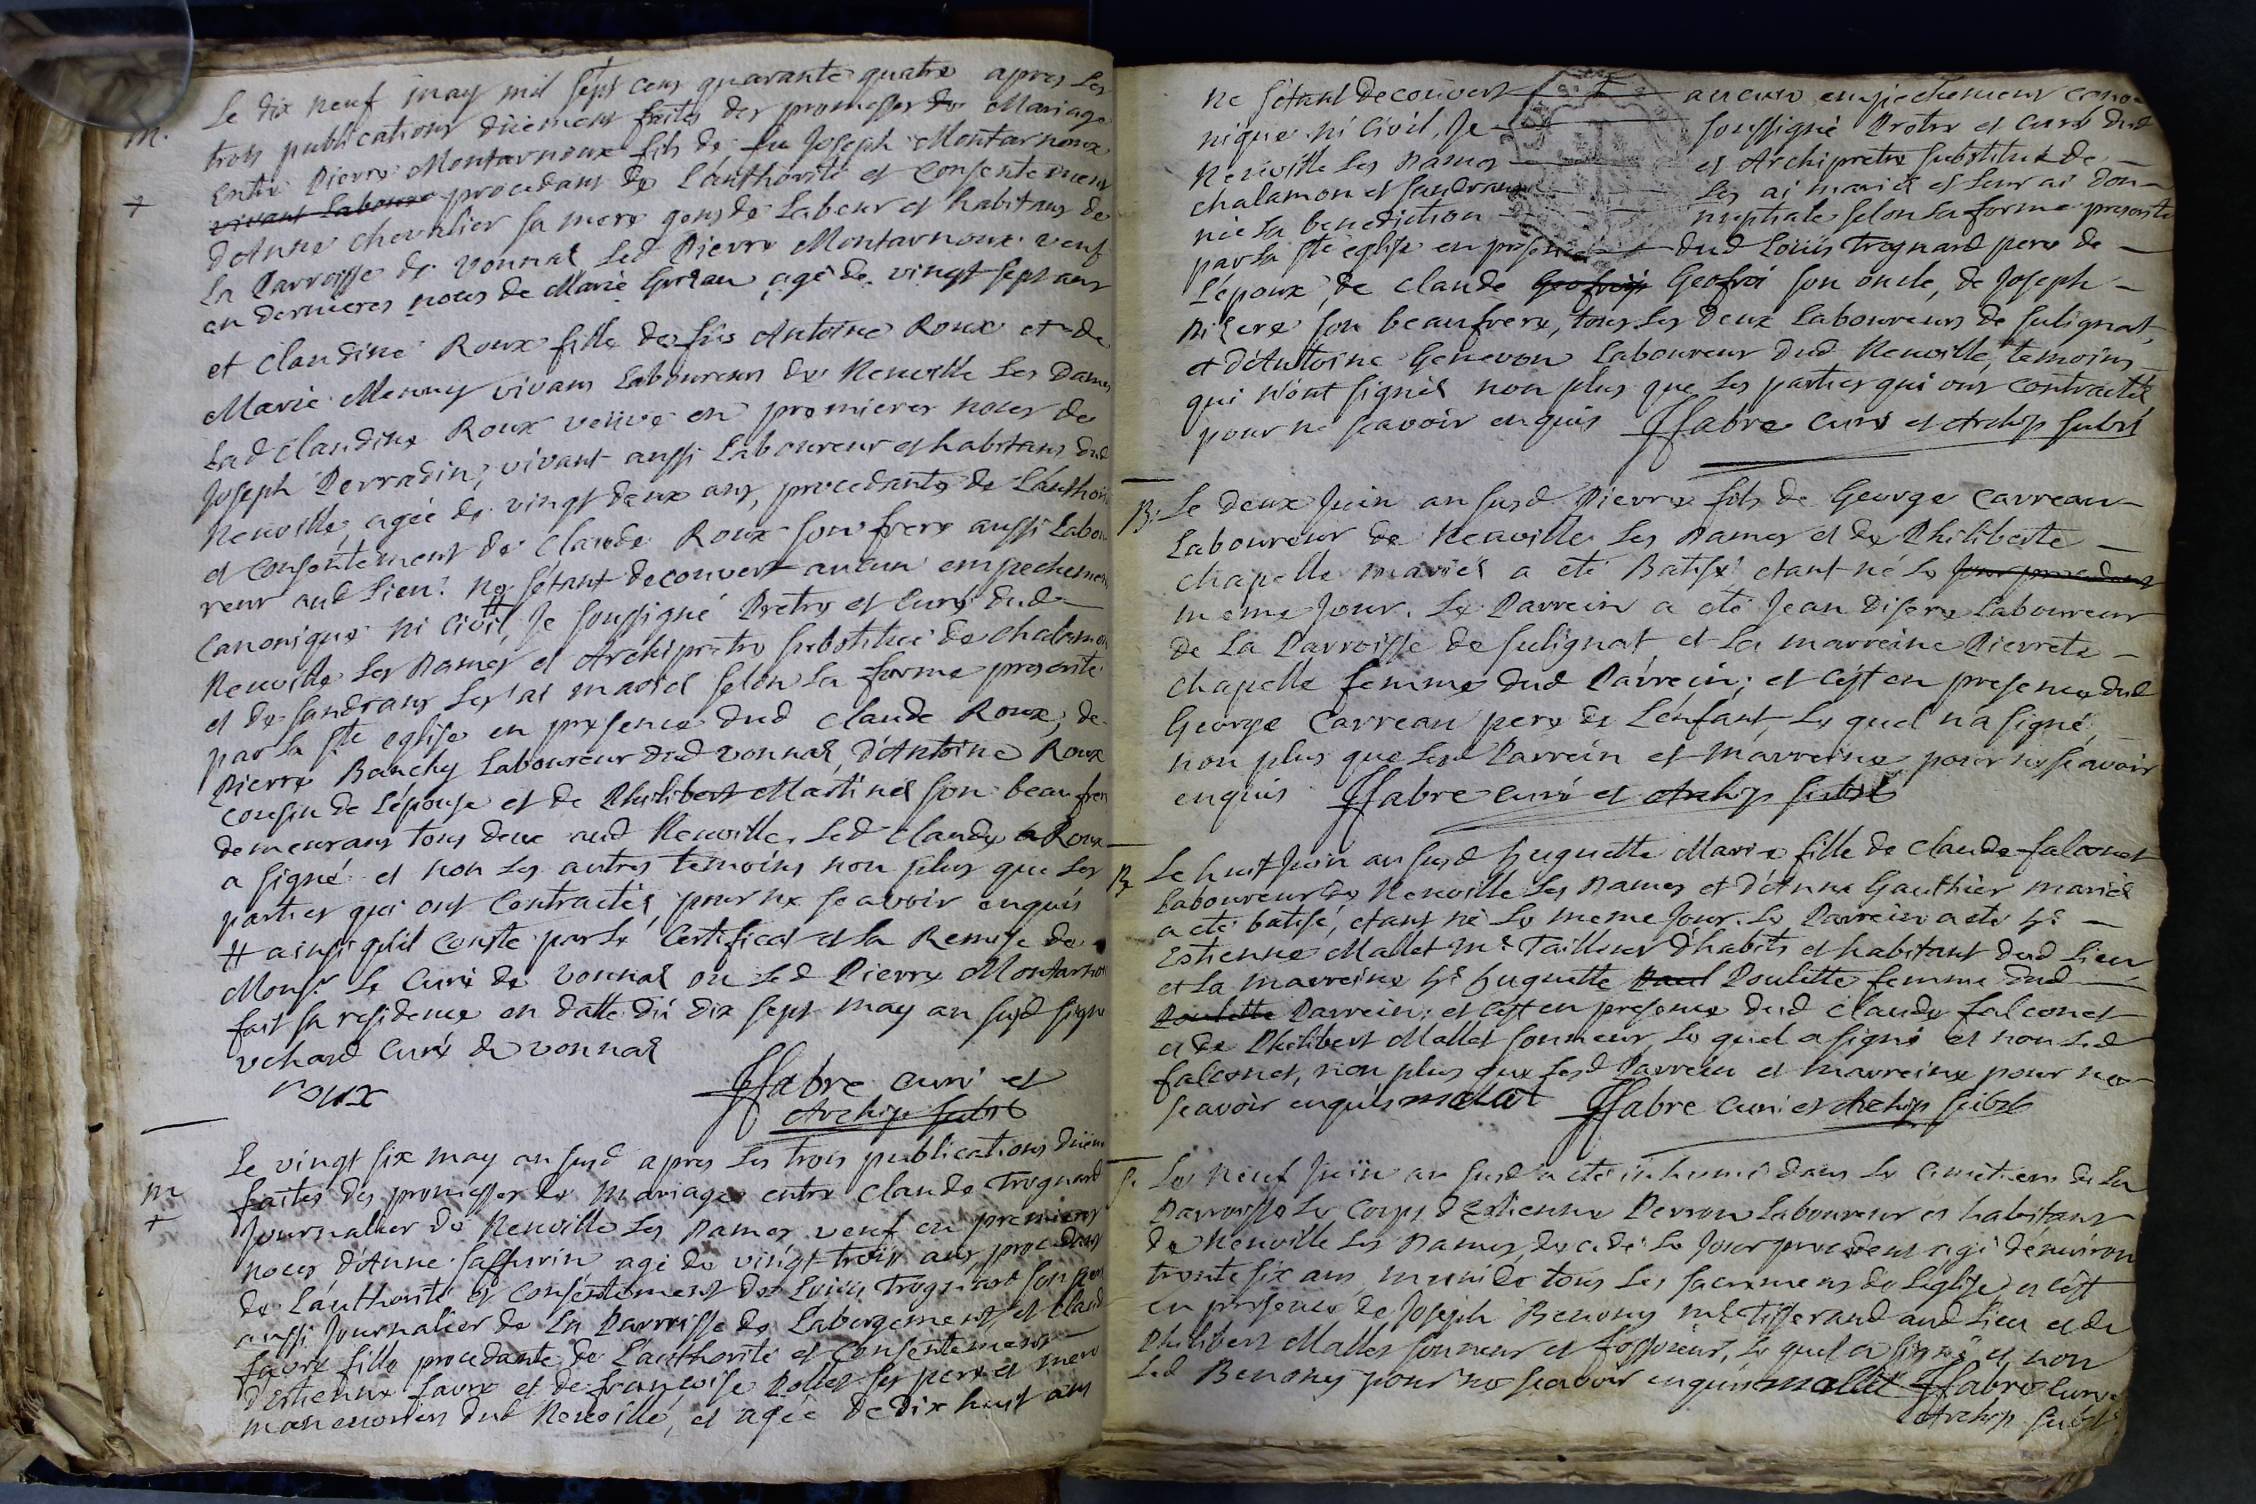 M.
Le dix neuf may mil sept cens quarante quatre apres les
trois publications düement faites des promesses de Mariage
Entre Pierre Montarnoux fils de fu Joseph Montarnoux
+
vivant Laboure procedant de L'authorité et Consentement
d'Anne chevalier sa mere gens de Labeur et habitans de
La Parroisse de vonnas Led Pierre Montarnoux veuf
en dernieres noces de Marie agé de vingt sept ans
et Claudine Roux fille de fûs Antoine Roux et de
Marie vivans Laboureurs de Neuville Les Dames
Lad Claudine Roux veuve en premieres noces de
Joseph Perradin, vivant aussi Laboureur et habitans dud
Neuville, agée de vingt deux ans, procedante de L'author
et Consentement de Claude Roux son frere aussi Labou
reur aud Lieu: Ne s'étant decouvert aucun empechement
Canonique ni Civil, # Je soussigné Pretre et Curé dud
Neuville Les Dames et Archipretre substitué de chalamon
et de sandrans Les ai mariés selon La forme prescrite
par La Ste eglise en presence dud Claude Roux, de
Pierre Banchy Laboureur dud vonnas, d'Antoine Roux
Cousin de L'épouse et de Philibert Martinés son beaufrere
demeurans tous deux aud Neuville. Led Claude Roux
a signé et non Les autres temoins non plus que Les
parties qui ont Contractés pour ne sçavoir enquis
# ainsi qu'il Conste par Le Certificat et la Remise de
Monsr Le Curé de vonnas ou Led Pierre Montarnou
fait sa residence en datte du dix sept may an susd signé
vchard Curé de vonnas
roux
ffabre curé et
Archip subst
M
+
Le vingt six may an susd apres Les trois publications düem
faites des promesses de mariage entre Claude Trognard
Journalier de Neuville Les Dames veuf en premieres
noces d'Anne Saffurin agé de vingt trois ans, procedant
de L'authorité et Consentement de Loüis Trognard son pere
aussi Journalier de La Parroisse de Labergement et Claud
favre fille procedante de L'authorité et Consentement
d'Estienne favre et de françoise Pollet ses pere et mere
manouvriers dud Neuville, et agée de dix huit ans
ne s'étant decouvert aucun empechement cano-
nique ni civil, Je soussigné Pretre et Curé dud
Neuville Les Dames et Archipretre substitué de
chalamon et sandrans Les ai mariés et leur ai don-
née la benediction nuptiale selon La forme prescrite
par La Ste eglise en presence dud Loüis Trognard pere de
L'époux, de Claude Geofroi Geofroi son oncle, de Joseph
son beaufrere, tous Les deux Laboureurs de sulignat,
et d'Antoine Genevon Laboureur dud Neuville, temoins
qui n'ont signés non plus que Les parties qui ont contractés
pour ne sçavoir enquis ffabre curé et Archip subst
B:
Le deux Juin an susd Pierre fils de George Carreau
Laboureur de Neuville Les Dames et de Philiberte
chapelle mariés a eté Batisé etant né Le Jour precedent
meme Jour. Le Parrein a eté Jean Laboureur
de La Parroisse de sulignat, et La marreine Pierrete
chapelle femme dud Parrein; et c'est en presence dud
George Carreau pere de L'enfant, Le quel n'a signé,
non plus que Lesd Parrein et Marreine pour ne sçavoir
enquis ffabre curé et Archip subst
B
Le huit Juin an susd huguette Marie fille de Claude falconet
Laboureur de Neuville Les Dames et d'Anne Gauthier mariés
a eté batisé, etant né Le meme Jour. Le Parrein a eté hr
Estienne Mallet Me Tailleur d'habits et habitant dud Lieu
et La marreine hr huguette Paul Poulette femme dud
Poulette Parrein; et c'est en presence dud Claude falconet
et de Philibert Mallet sonneur, Le quel a signé et non Led
falconet, non plus que Lesd Parrein et Marreine pour ne
sçavoir enquis malat ffabre curé et Archip subst
S.
Le neuf Juin an susd a eté inhumé dans Le Cimetiere de La
Parroisse Le Corps d'Estienne Perron Laboureur et habitant
de Neuville Les Dames, decedé Le Jour precedent agé d'environ
trente six ans, muni de tous Les sacremens de L'eglise, et c'est
en presence de Joseph Benony Me Tisserand aud Lieu et de
Philibert Mallet sonneur et fossoieur, Le quel a signé et non
Led Benony pour ne sçavoir enquis mallet ffabre curé
Archip subst